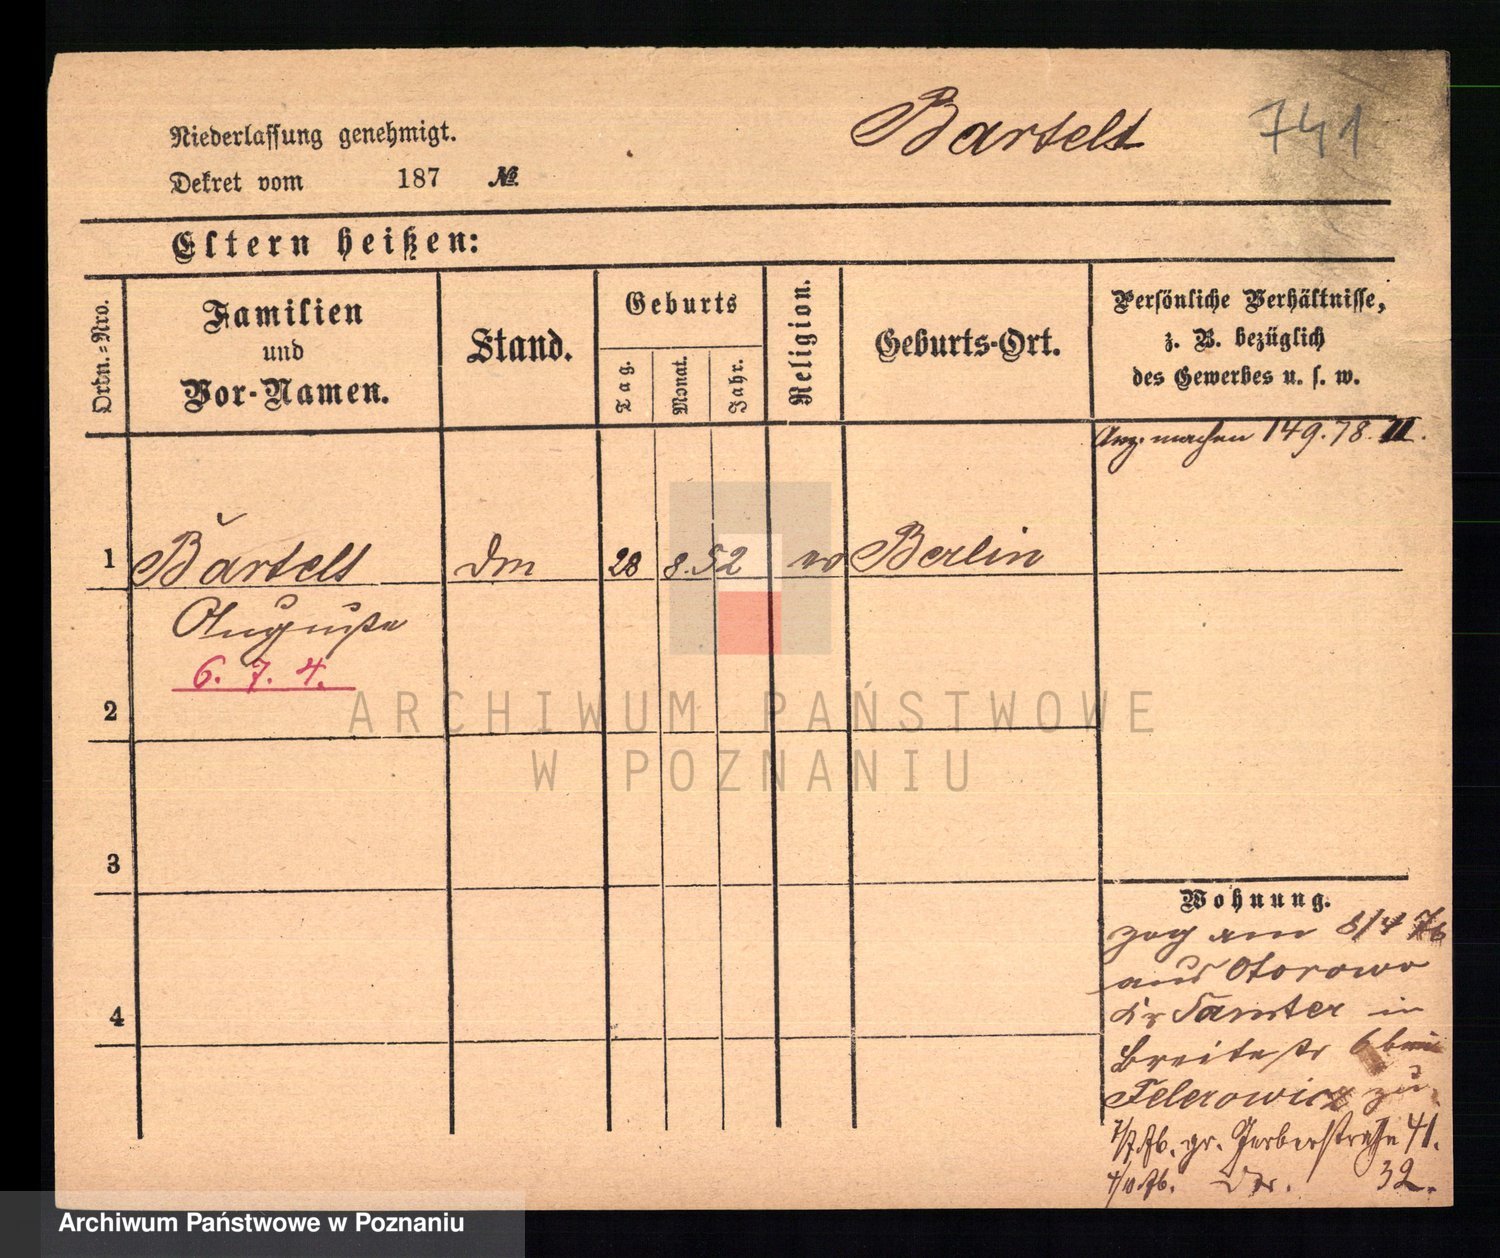 Bartelt 741
Niederlassung genehmigt.
Dekret vom 187 №.
Eltern heißen:
Ordn.-Nro.
Familien
und
Vor-Namen.
Stand.
Geburts
Tag.
Monat.
Jahr.
Religion.
Geburts-Ort.
Persönliche Verhältnisse,
z. B. bezüglich
des Gewerbes u. s. w.
machen 149.78.II.
1 Bartelt Dm 28 8. 52 Berlin
Auguste
6. 7. 4.
2
3
4
Wohnung.
zog am 8/4 76
aus Otorowo
Kr Samter in
Breitestr 6 bei
Felerowicz zu
7/7.76. gr. Gerberstraße 41.
32.
ARCHIWUM PAŃSTWOWE
W POZNANIU
Archiwum Państwowe w Poznaniu